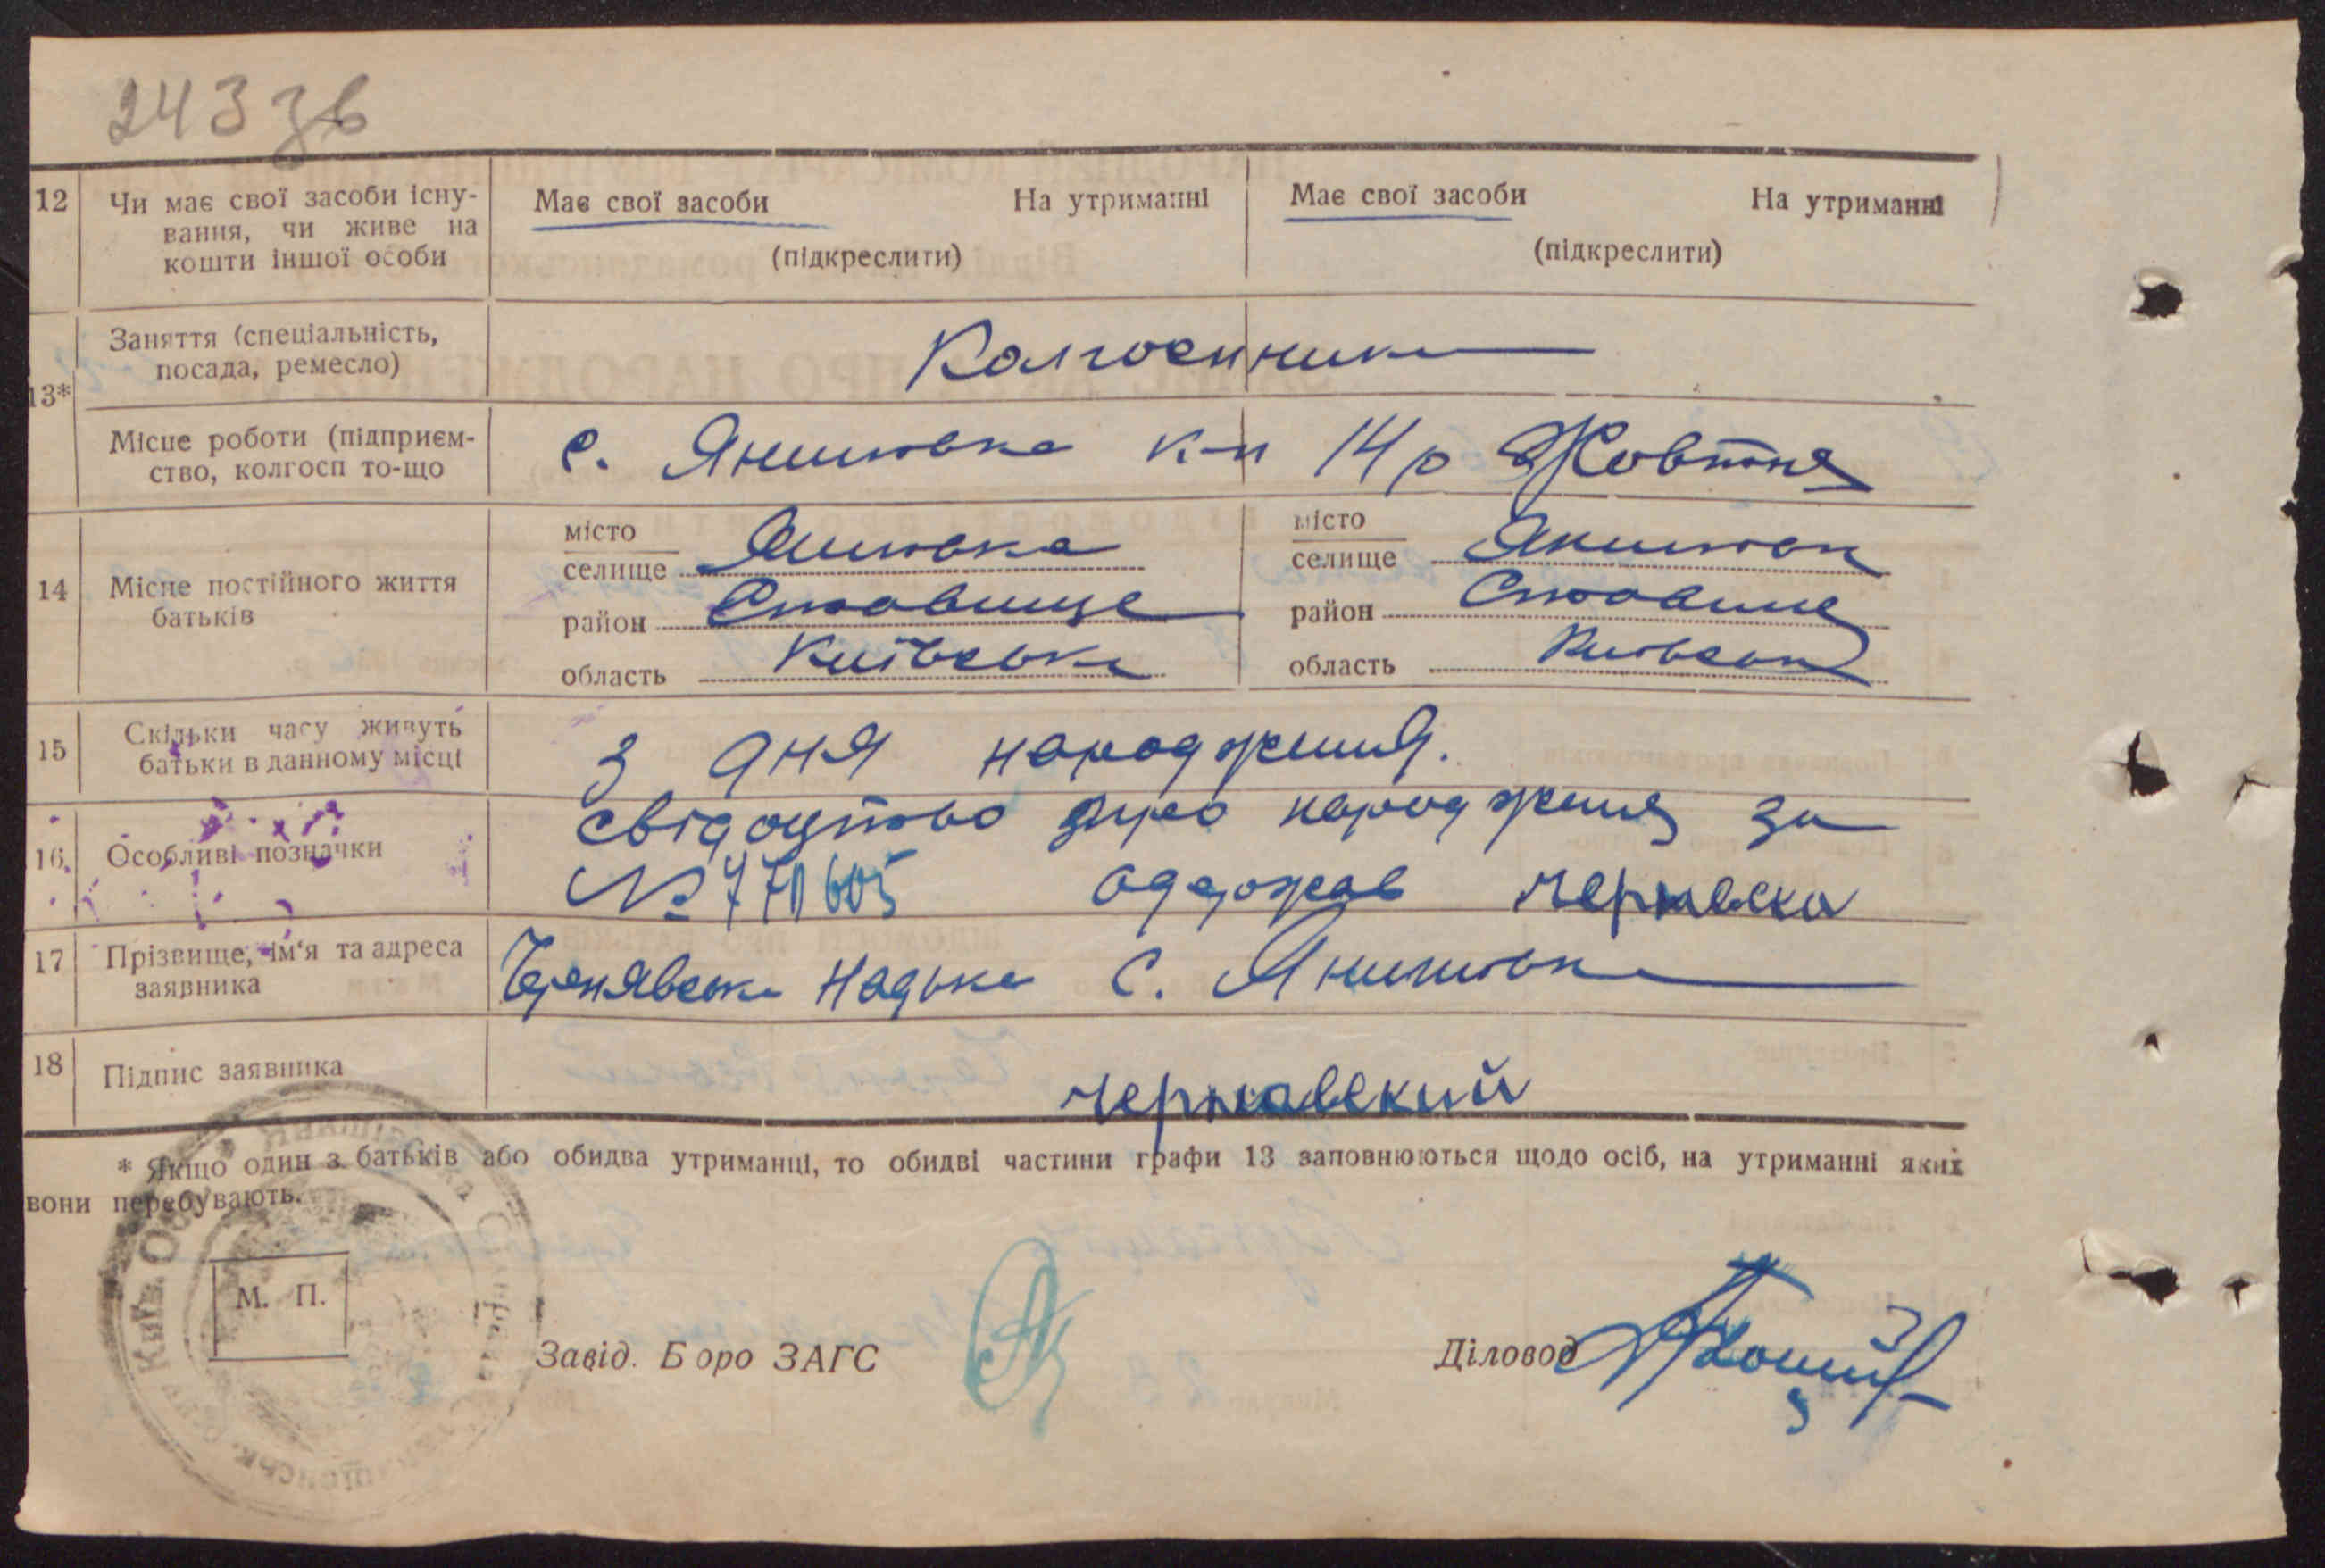 243 зв
12 Чи має свої засоби існу- Має свої засоби На утриманні Має свої засоби На утриманні
вання, чи живе на
кошти іншої особи (підкреслити) (підкреслити)
Заняття (спеціальність,
посада, ремесло) Колгоспники
13*
Місце роботи (підприєм- с. Янишовка к-п 14 р Жовтня
ство, колгосп то-що
14 Місце постійного життя
батьків
місто
селище Янишовка
район Ставище
область Київська
місто
селище Янишовк
район Ставище
область Київськ
15 Скільки часу живуть
батьки в данному місці З дня народження.
16. Особливі позначки свідоцтво про народження за
№ 770605 одержав Чернавски
17 Прізвище, ім'я та адреса
заявника Чернявськ Надька С. Янишовк
18 Підпис заявника
Чернавский
* Якщо один з батьків або обидва утриманці, то обидві частини графи 13 заповнюються щодо осіб, на утриманні яких
вони перебувають.
М. П.
Завід. Бюро ЗАГС Діловод